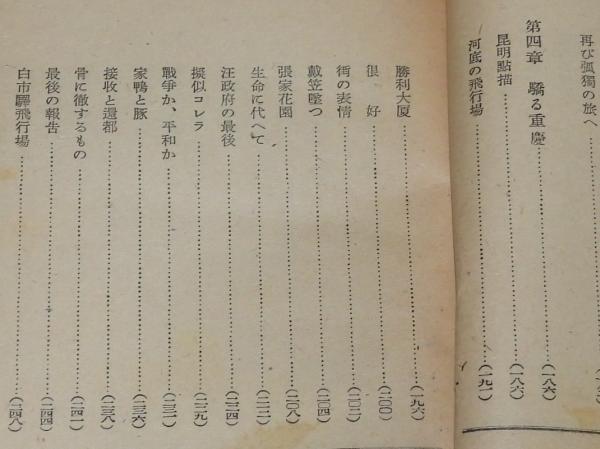 再び孤獨の旅へ
第四章 驕る重慶……(一八六)
昆明點描……(一八六)
河底の飛行場……(一九一)
勝利大厦……(一九六)
很好……(二〇〇)
街の表情……(二〇二)
戴笠墜つ……(二〇四)
張家花園……(二〇八)
生命に代へて……(二二二)
汪政府の最後……(二二四)
擬似コレラ……(二二九)
戰爭か、平和か……(二三二)
家鴨と豚……(二三六)
接收と還都……(二三八)
骨に徹するもの……(二四一)
最後の報告……(二四四)
白市驛飛行場……(二四八)